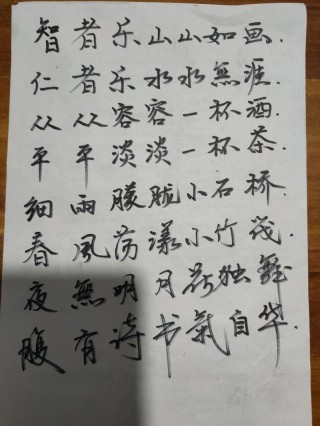 智者乐山山如画.
仁者乐水水無涯.
从从容容一杯酒.
平平淡淡一杯茶.
细雨朦胧小石桥.
春風荡漾小竹筏.
夜無明月花独舞.
腹有诗书氣自华.